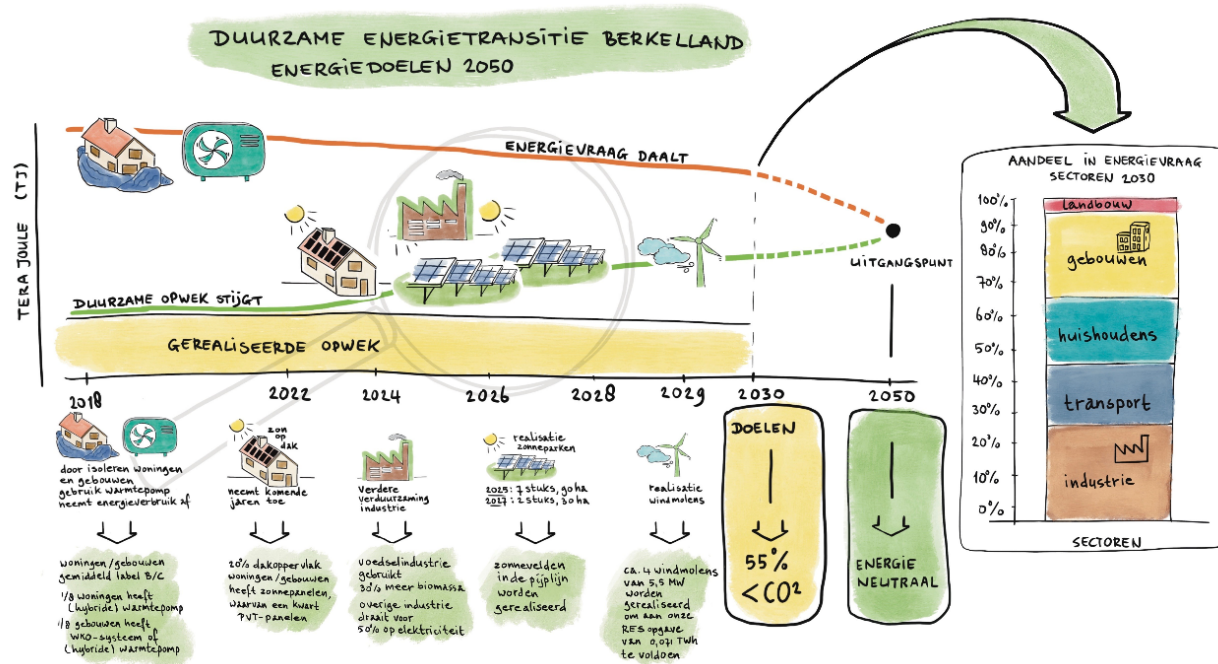 DUURZAME ENERGIETRANSITIE BERKELLAND
ENERGIEDOELEN 2050
TERA JOULE (TJ)
ENERGIEVRAAG DAALT
DUURZAME OPWEK STIJGT
GEREALISEERDE OPWEK
UITGANGSPUNT
2018
2022
2024
2026
2028
2029
2030
2050
door isoleren woningen
en gebouwen
gebruik warmtepomp
neemt energieverbruik af
woningen/gebouwen
gemiddeld label B/C
1/8 woningen heeft
(hybride) warmtepomp
1/8 gebouwen heeft
WKO-systeem of
(hybride) warmtepomp
zon
op
dak
neemt komende
jaren toe
20% dakoppervlak
woningen/gebouwen
heeft zonnepanelen,
waarvan een kwart
PVT-panelen
verdere
verduurzaming
industrie
voedselindustrie
gebruikt
30% meer biomassa
overige industrie
draait voor
50% op elektriciteit
realisatie
zonneparken
2025: 7 stuks, 90 ha
2027: 2 stuks, 30 ha
zonnevelden
in de pijplijn
worden
gerealiseerd
realisatie
windmolens
ca. 4 windmolens
van 5,5 MW
worden
gerealiseerd
om aan onze
RES opgave
van 0,071 TWh
te voldoen
DOELEN
55%
<CO2
ENERGIE
NEUTRAAL
AANDEEL IN ENERGIEVRAAG
SECTOREN 2030
100%
90%
80%
70%
60%
50%
40%
30%
20%
10%
0%
landbouw
gebouwen
huishoudens
transport
industrie
SECTOREN